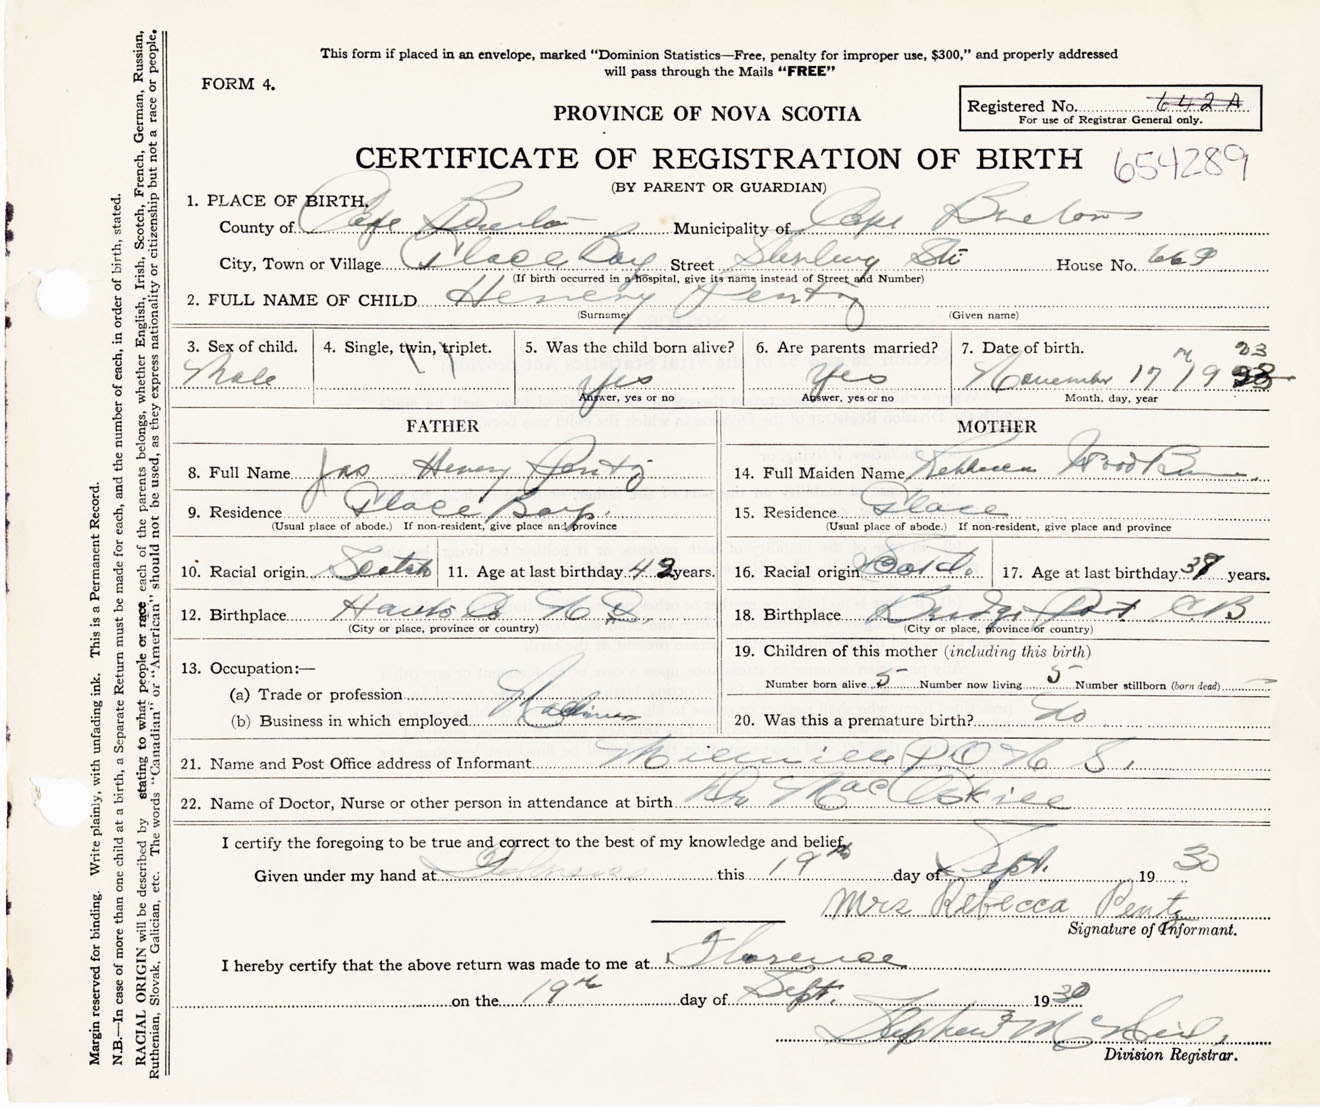 This form if placed in an envelope, marked "Dominion Statistics—Free, penalty for improper use, $300," and properly addressed
will pass through the Mails "FREE"
FORM 4.
PROVINCE OF NOVA SCOTIA
Registered No. 642 A
For use of Registrar General only.
CERTIFICATE OF REGISTRATION OF BIRTH 654289
(BY PARENT OR GUARDIAN)
1. PLACE OF BIRTH.
County of Cape Breton Municipality of Cape Breton
City, Town or Village Glace Bay Street Sterling St House No. 669
(If birth occurred in a hospital, give its name instead of Street and Number)
2. FULL NAME OF CHILD Henery Pentz
(Surname) (Given name)
3. Sex of child. 4. Single, twin, triplet. 5. Was the child born alive? 6. Are parents married? 7. Date of birth.
Male Yes Yes November 17 1923
Answer, yes or no Answer, yes or no Month, day, year
FATHER MOTHER
8. Full Name Jas Henery Pentz 14. Full Maiden Name
9. Residence Glace Bay. 15. Residence Glace
(Usual place of abode.) If non-resident, give place and province (Usual place of abode.) If non-resident, give place and province
10. Racial origin Scotch 11. Age at last birthday 42 years. 16. Racial origin 17. Age at last birthday 39 years.
12. Birthplace Hants Co N S. 18. Birthplace Bridge Port C.B
(City or place, province or country) (City or place, province or country)
13. Occupation:— 19. Children of this mother (including this birth)
(a) Trade or profession Number born alive 5 Number now living 5 Number stillborn (born dead)
(b) Business in which employed 20. Was this a premature birth? No
21. Name and Post Office address of Informant P.O N S.
22. Name of Doctor, Nurse or other person in attendance at birth Dr MacAskill
I certify the foregoing to be true and correct to the best of my knowledge and belief.
Given under my hand at Florence this 19th day of Sept. 1930
Mrs Rebecca Pentz
Signature of Informant.
I hereby certify that the above return was made to me at Florence
on the 19th day of Sept. 1930
Stephen McNeil,
Division Registrar.
Margin reserved for binding. Write plainly, with unfading ink. This is a Permanent Record.
N.B.—In case of more than one child at a birth, a Separate Return must be made for each, and the number of each, in order of birth, stated.
RACIAL ORIGIN will be described by stating to what people or race each of the parents belongs, whether English, Irish, Scotch, French, German, Russian,
Ruthenian, Slovak, Galician, etc. The words "Canadian" or "American" should not be used, as they express nationality or citizenship but not a race or people.